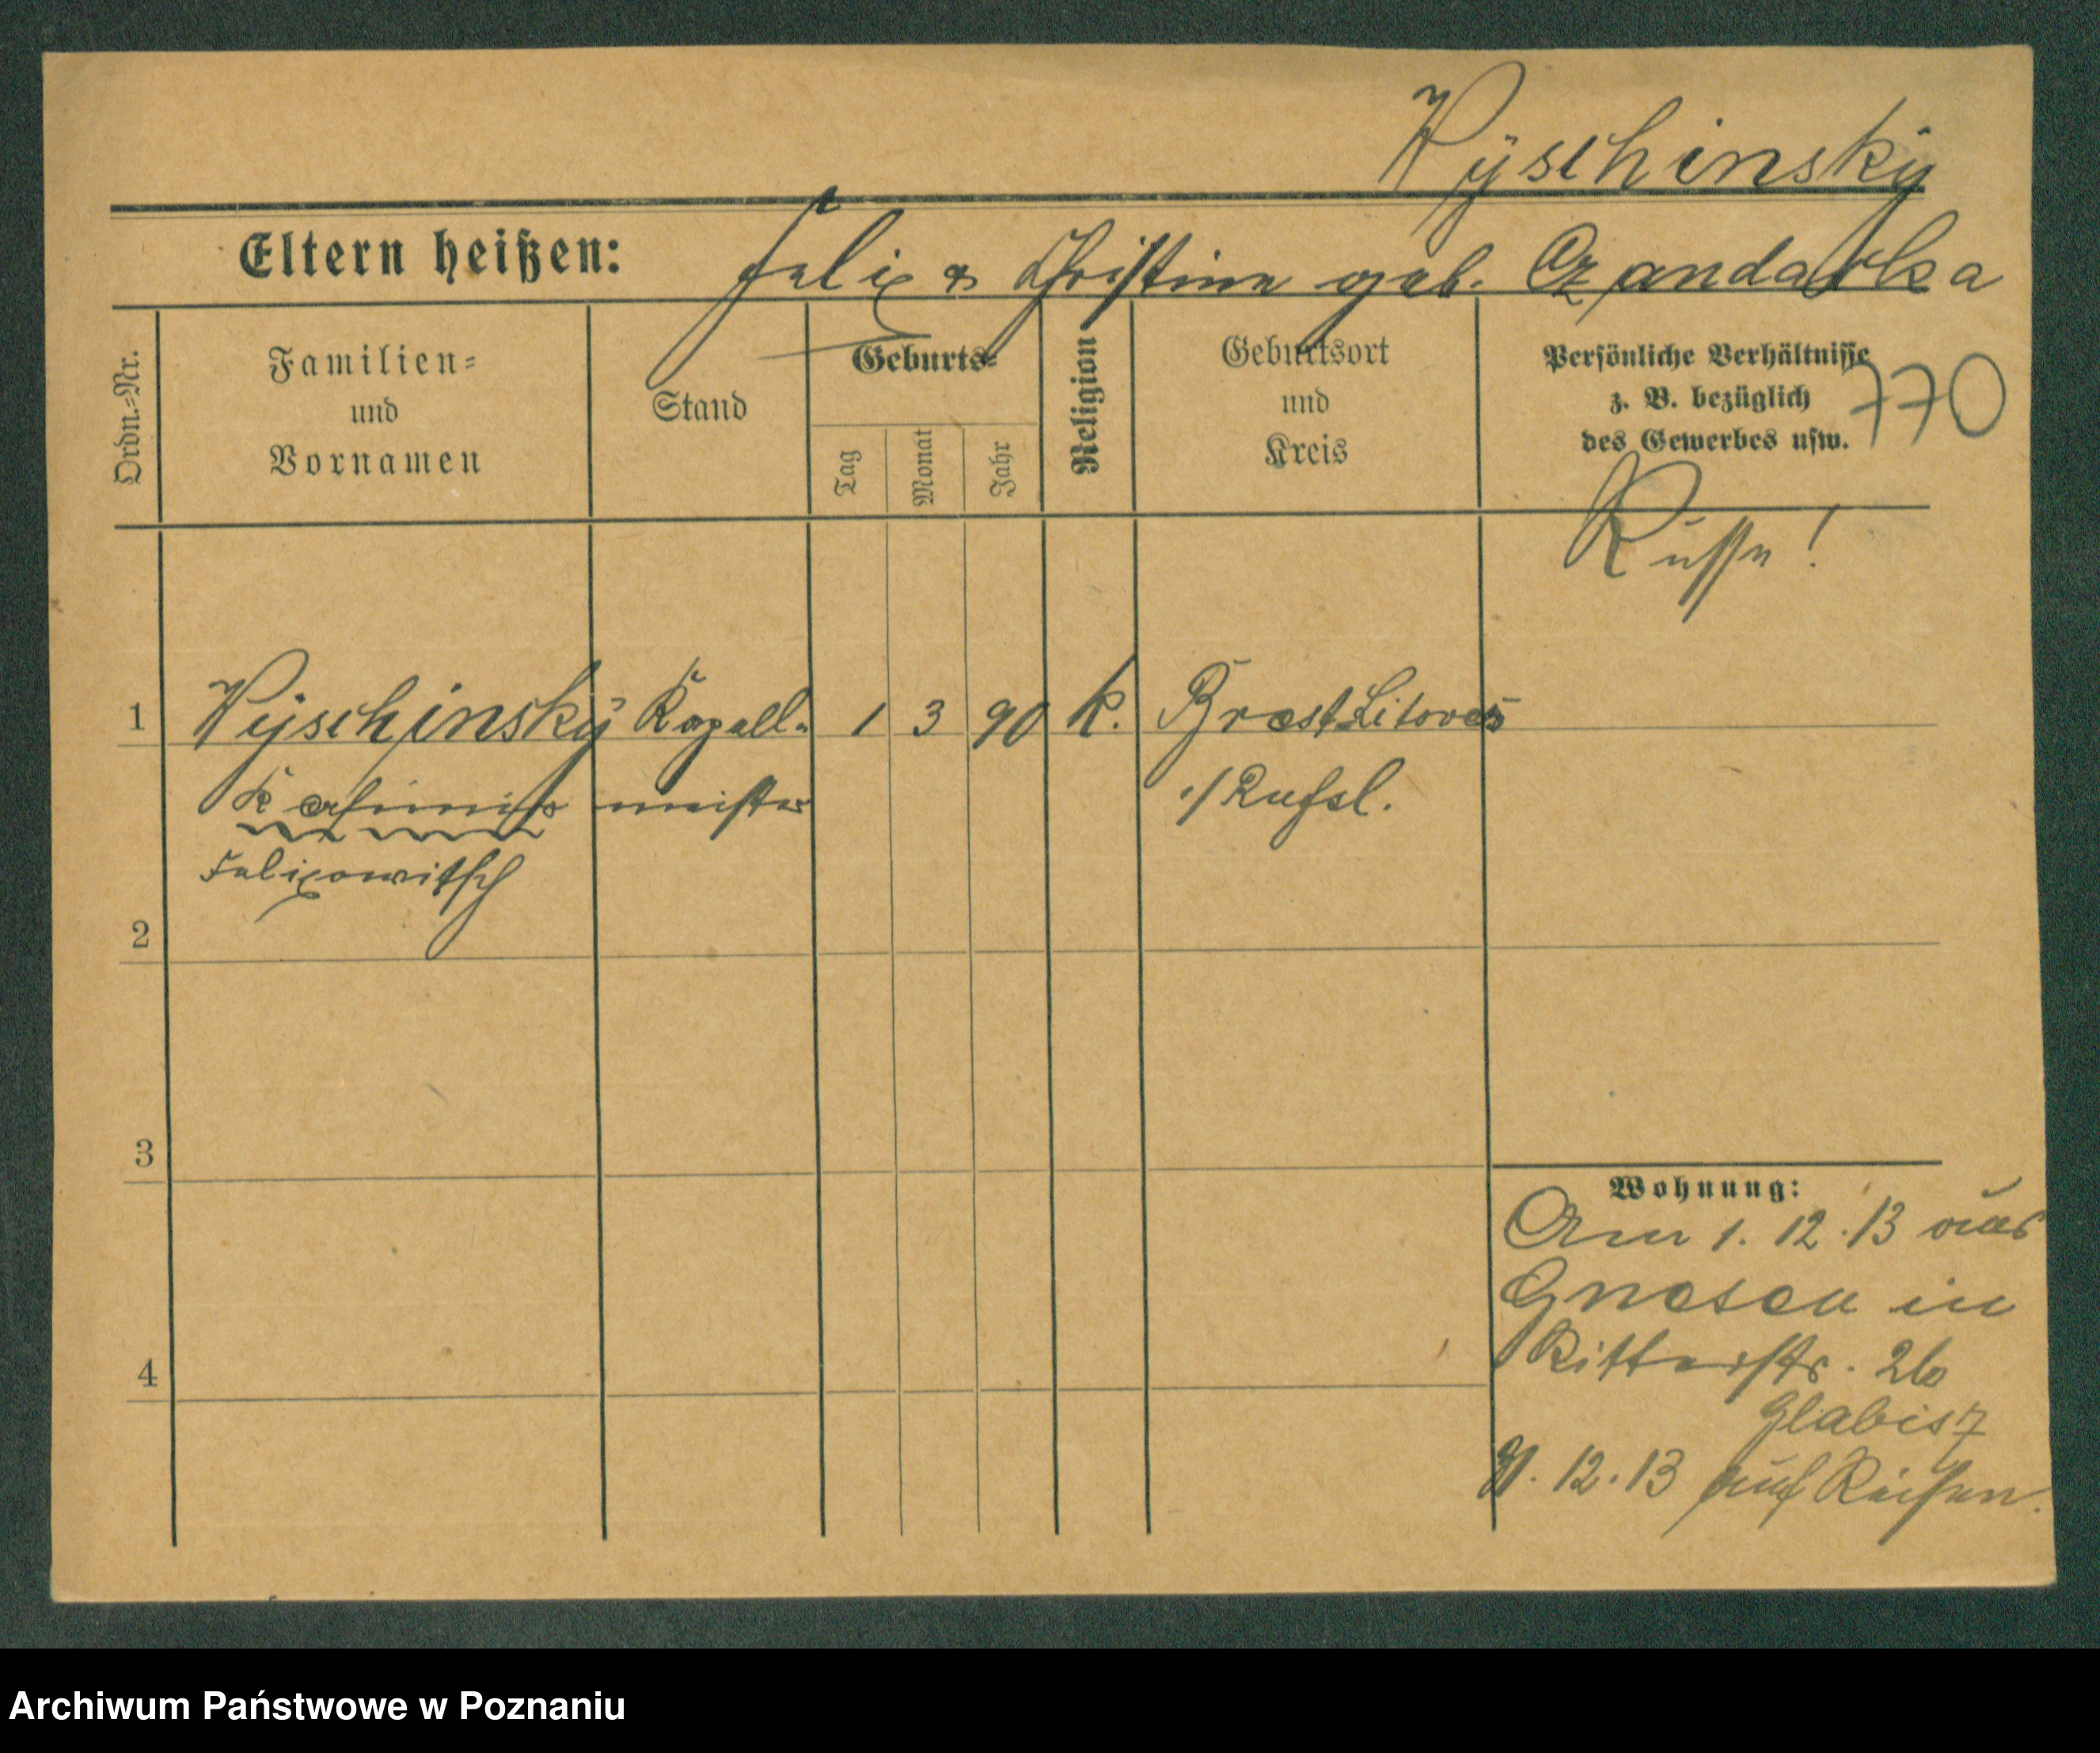 Wyschinsky
Eltern heißen: Felix & Christine geb. Czandarka
Ordn.-Nr.
Familien-
und
Vornamen
Stand
Geburts-
Tag
Monat
Jahr
Religion
Geburtsort
und
Kreis
Persönliche Verhältnisse
z. B. bezüglich
des Gewerbes usw.
770
Russe!
1 Wyschinsky Kapell- 1 3 90 k. Brest Litows
Kasimir meister i/Russl.
Felixowitsch
2
3
4
Wohnung:
Am 1. 12. 13 aus
Gnesen in
Ritterstr. 26
Glabisz
31. 12. 13 auf Reisen.
Archiwum Państwowe w Poznaniu